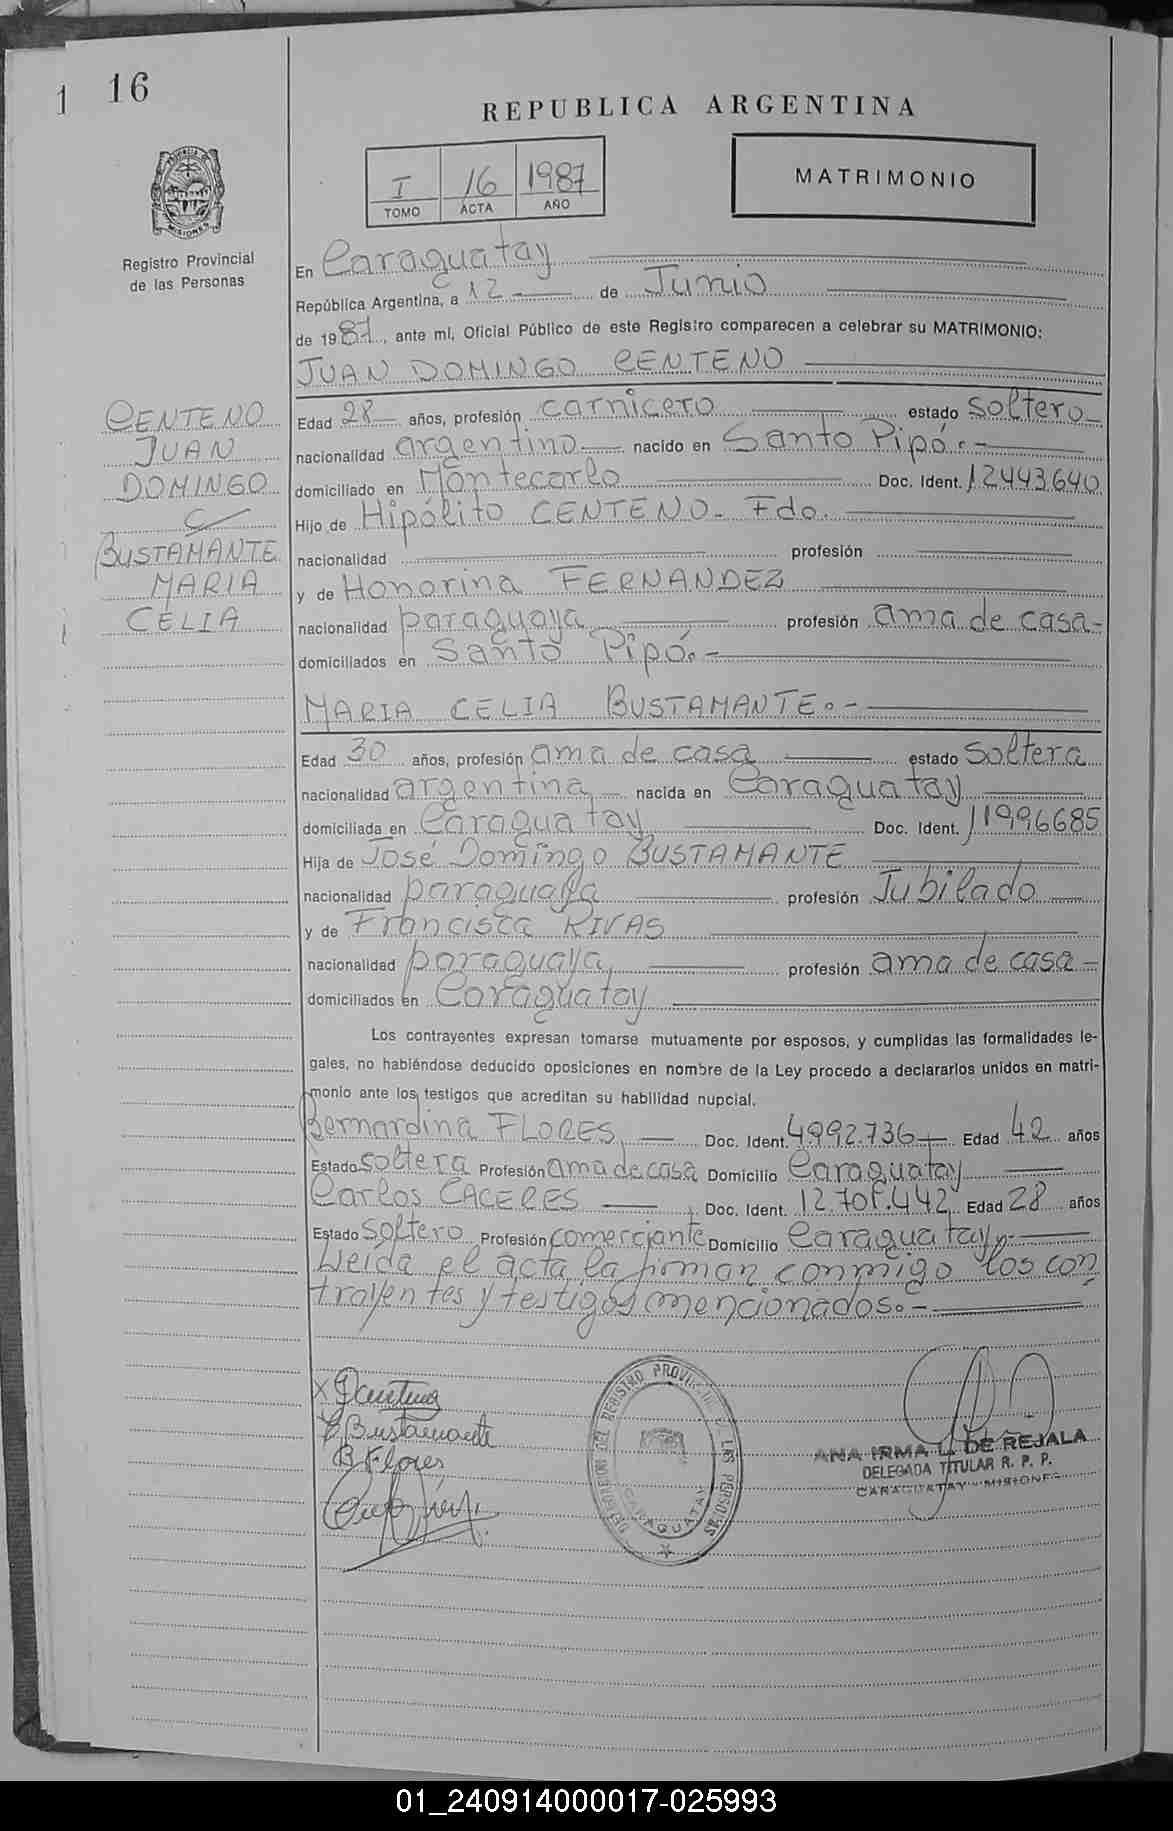 1 16
REPUBLICA ARGENTINA
I 16 1987
TOMO ACTA AÑO
MATRIMONIO
PROVINCIA DE MISIONES
Registro Provincial
de las Personas
En Caraguatay
República Argentina, a 12 de Junio
de 1987, ante mí, Oficial Público de este Registro comparecen a celebrar su MATRIMONIO:
JUAN DOMINGO CENTENO
CENTENO
JUAN
DOMINGO
c/
BUSTAMANTE
MARIA
CELIA
Edad 28 años, profesión carnicero estado soltero
nacionalidad argentino nacido en Santo Pipó.-
domiciliado en Montecarlo Doc. Ident. 12443.640
Hijo de Hipólito CENTENO. Fdo.
nacionalidad profesión
y de Honorina FERNANDEZ
nacionalidad paraguaya profesión ama de casa-
domiciliados en Santo Pipó.-
MARIA CELIA BUSTAMANTE.-
Edad 30 años, profesión ama de casa estado soltera
nacionalidad argentina, nacida en Caraguatay
domiciliada en Caraguatay Doc. Ident. 11996685
Hija de José Domingo BUSTAMANTE
nacionalidad paraguaya profesión Jubilado
y de Francisca RIVAS
nacionalidad paraguaya, profesión ama de casa-
domiciliados en Caraguatay
Los contrayentes expresan tomarse mutuamente por esposos, y cumplidas las formalidades le-
gales, no habiéndose deducido oposiciones en nombre de la Ley procedo a declararlos unidos en matri-
monio ante los testigos que acreditan su habilidad nupcial.
Bernardina FLORES, Doc. Ident. 4992.736 Edad 42 años
Estado soltera Profesión ama de casa Domicilio Caraguatay
Carlos CACERES Doc. Ident. Edad 28 años
Estado soltero Profesión comerciante Domicilio Caraguatay.-
Leida el acta, la firman conmigo los con
trayentes y testigos mencionados.-
X
Bustamante
B Flores
REGISTRO PROVINCIAL DE LAS PERSONAS
CARAGUATAY
ANA IRMA L. DE REJALA
DELEGADA TITULAR R. P. P.
CARAGUATAY - MISIONES
01_240914000017-025993